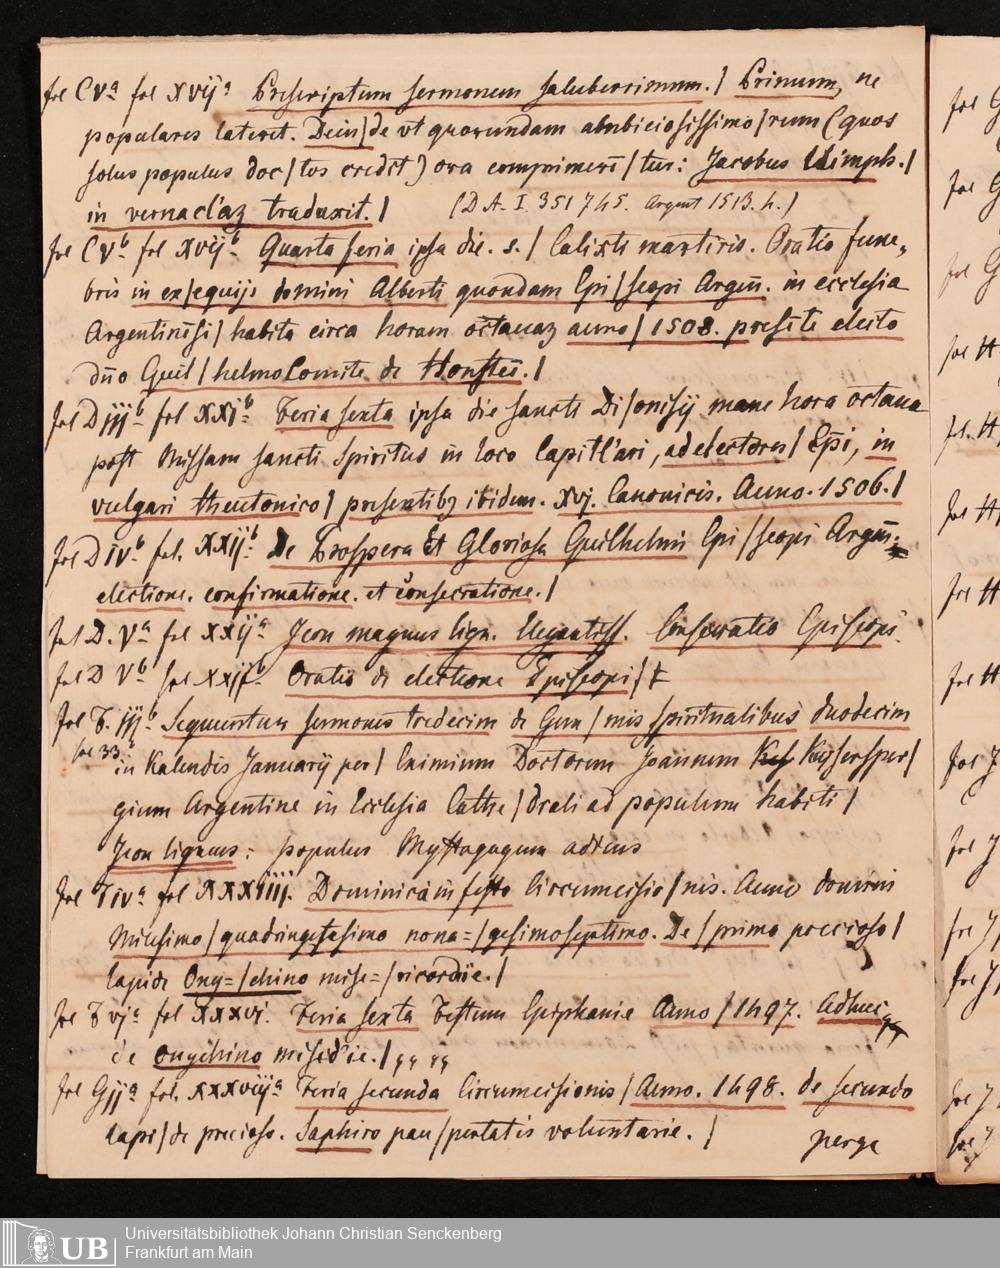 fol Cvᵃ fol XVijᵃ Prescriptum sermonem saluberrimum. / Primum, ne
populares lateret. Dein / de vt quorundam abubiciosissimo / rum (quos
solus populus doc / tos credit) ora comprimerē / tur: Jacobus Wimph. /
in vernacl'aʒ traduxit. / (D A. I. 351 745. Argent 1513. h.)
fol Cvᵇ fol XVijᵇ Quarta feria ipsa die. s. / Calixti martiris. Oratio fune,
bris in ex / equijs domini Alberti quondam Epi / scopi Argeñ. in ecclesia
Argentinēsi / habita circa horam octauaʒ anno / 1508. presēte electo
dño Guil / helmo Comite de Honsteī. /
fol Diijᵇ fol XXIᵇ Feria sexta ipsa die sancti Di / onisij mane hora octaua
post Missam sancti Spiritus in loco Capitl'ari, ad electores / Epi, in
vulgari theutonico / presentibʒ ibidem. XVj. Canonicis. Anno. 1506. /
fol Divᵇ fol. XXijᵇ De Prospera Et Gloriosa Guilhelmi Epi / scopi Argeñ.
electione. confirmatione. et consecratione. /
fol D. Vᵃ fol XXijᵃ Icon magnus lign. Elegantiss. Consecratio Episcopi
fol D Vᵇ fol XXijᵇ Oratio de electione Episcopi /
fol F. iijᵇ Sequuntur sermones tredecim de Gem / mis spiritualibus duodecim
fol 33.
in Kalendis Januarij per / Eximium Doctorem Joannem Keysersper /
gium Argentine in Ecclesia Cathe / drali ad populum habiti /
Icon ligneus: populus Mystagogum adiens
fol Fivᵃ fol XXXiiij. Dominica in festo Circumcisio / nis. Anno domini
Milesimo / quadringētesimo nona= / gesimoseptimo. De / primo precioso /
lapide Ony= / chino mise= / ricordiie. /
fol F vjᵃ fol XXXVI. Feria sexta Festum Epiphanie Anno / 1497. Adhuc
de Onychino mis'd'ie. /
fol Gijᵃ fol. XXXViijᵃ Feria secunda Circumcisionis / Anno. 1498. de secundo
lapi / de precioso. Saphiro pau / pertatis voluntarie. / perge
Universitätsbibliothek Johann Christian Senckenberg
UB Frankfurt am Main